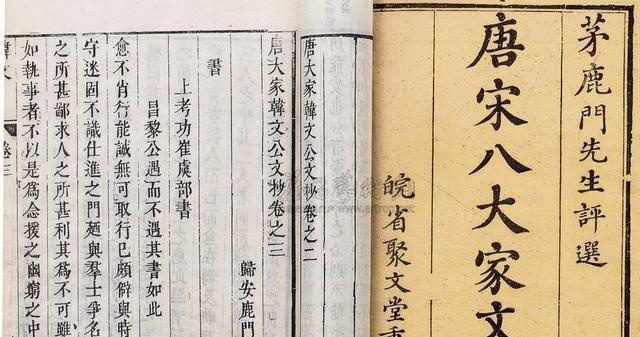 茅鹿門先生評選
唐宋八大家文
皖省聚文堂重
唐大家韓文公文抄卷之二
唐大家韓文公文抄卷之三
歸安鹿門
書
上考功崔虞部書
昌黎公遇而不遇其書如此
愈不肖行能誠無可取行已頗僻與時
守迷固不識仕進之門廼與羣士爭名
之所甚鄙求人之所甚利其為不可雖
如執事者不以是為念援之幽窮之中
韓文 卷三